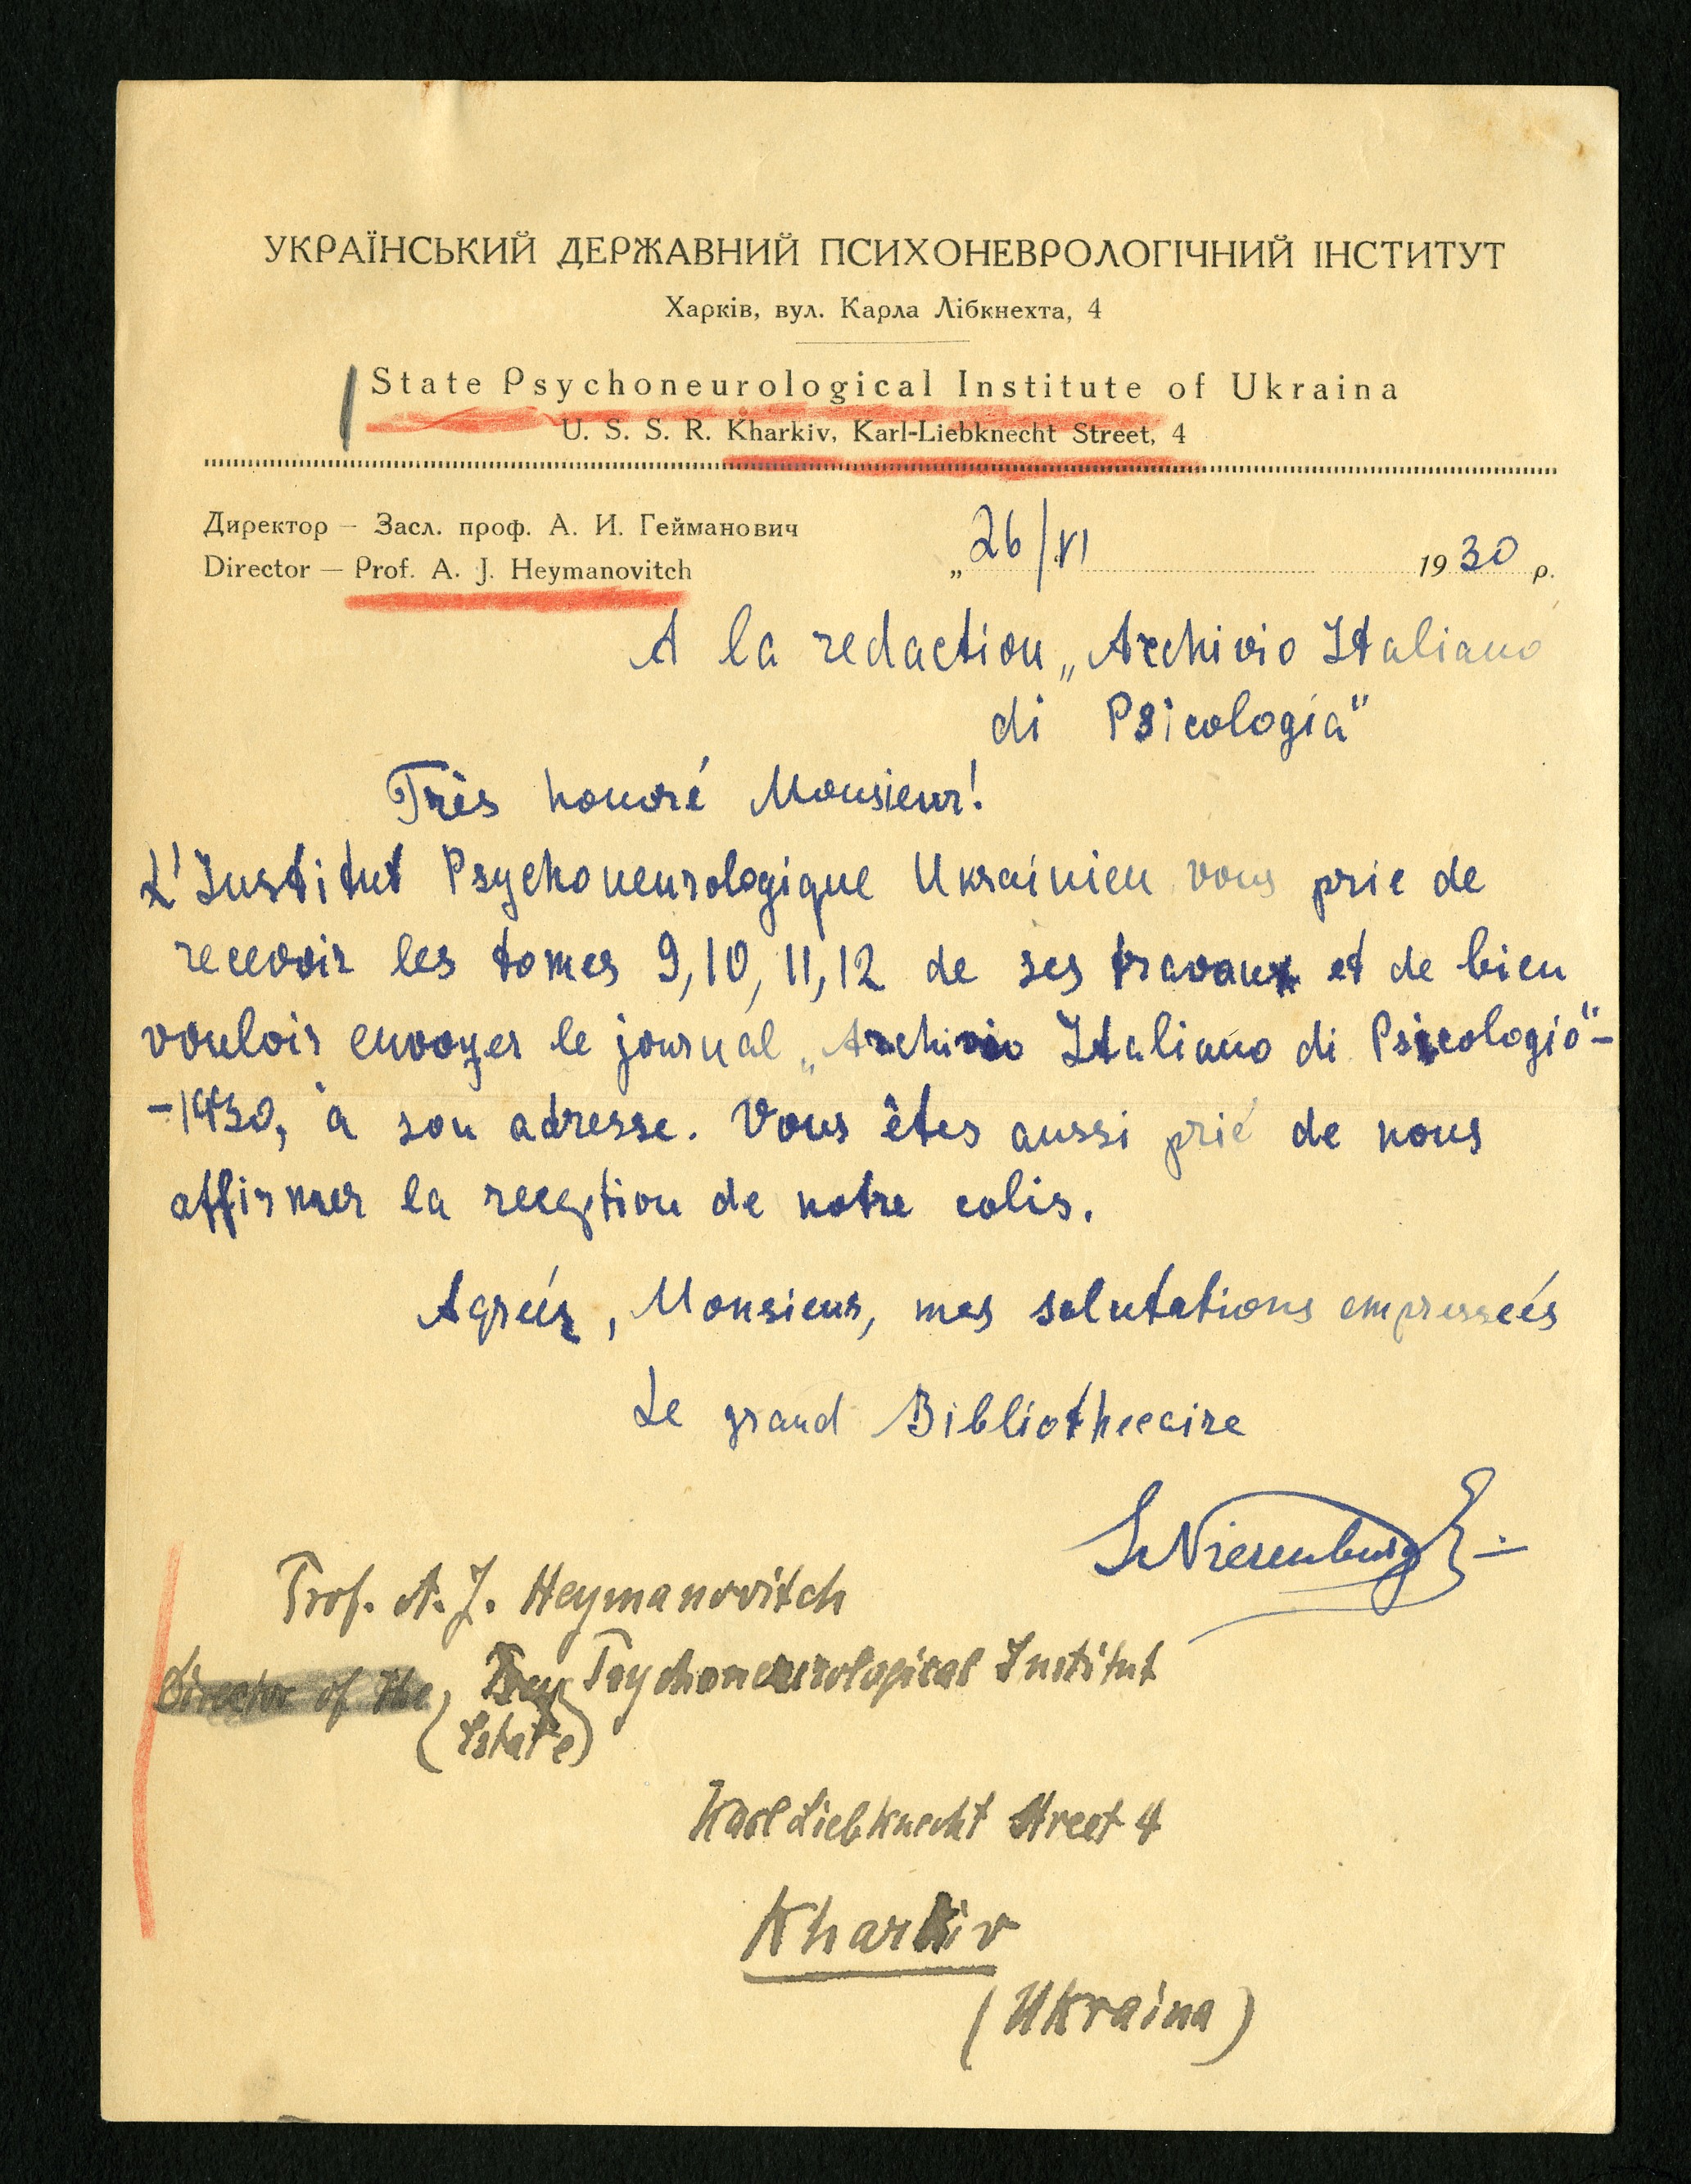 УКРАЇНСЬКИЙ ДЕРЖАВНИЙ ПСИХОНЕВРОЛОГІЧНИЙ ІНСТИТУТ
Харків, вул. Карла Лібкнехта, 4
State Psychoneurological Institute of Ukraina
U. S. S. R. Kharkiv, Karl-Liebknecht Street, 4
Директор — Засл. проф. А. И. Гейманович
Director — Prof. A. J. Heymanovitch
„26/VI 1930 р.
A la redaction „Archivio Italiano
di Psicologia"
Très honoré Monsieur!
L'Institut Psychoneurologique Ukrainien vous prie de
recevoir les tomes 9, 10, 11, 12 de ses travaux et de bien
vouloir envoyer le journal „Archivio Italiano di Psicologio"-
-1930, à son adresse. Vous êtes aussi prié de nous
affirmer la reception de notre colis.
Agreér, Monsieur, mes salutations empresseés
Le grand Bibliothecaire
Prof. A. J. Heymanovitch
Director of the Psychoneurological Institut
(State)
Karl Liebknecht Street 4
Kharkiv
(Ukraina)